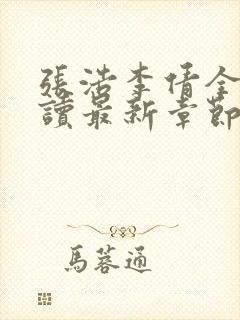 張浩李倩全
讀最新章節
馬蓉通